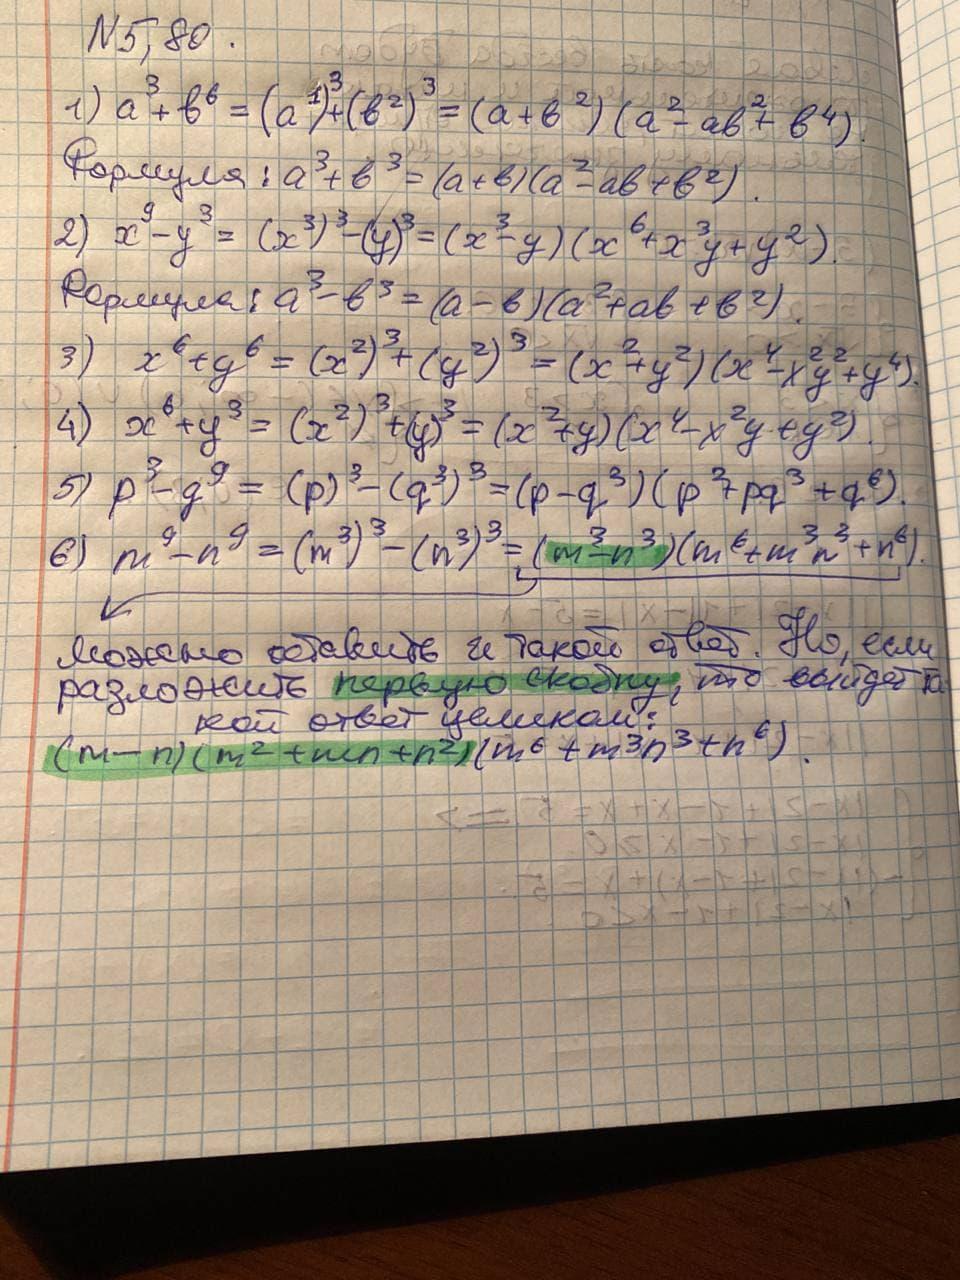 N5,80.
1) a³+b⁶ = (a¹)³+(b²)³ = (a+b²)(a²-ab²+b⁴).
Формула: a³+b³ = (a+b)(a²-ab+b²).
2) x⁹-y³ = (x³)³-(y)³ = (x³-y)(x⁶+x³y+y²).
Формула: a³-b³ = (a-b)(a²+ab+b²).
3) x⁶+y⁶ = (x²)³+(y²)³ = (x²+y²)(x⁴-x²y²+y⁴).
4) x⁶+y³ = (x²)³+(y)³ = (x²+y)(x⁴-x²y+y²).
5) p³-q⁹ = (p)³-(q³)³ = (p-q³)(p²+pq³+q⁶).
6) m⁹-n⁹ = (m³)³-(n³)³ = (m³-n³)(m⁶+m³n³+n⁶).
Можно оставить и такой ответ. Но, если
разложить первую скобку, то выйдет та
кой ответ целиком:
(m-n)(m²+mn+n²)(m⁶+m³n³+n⁶).